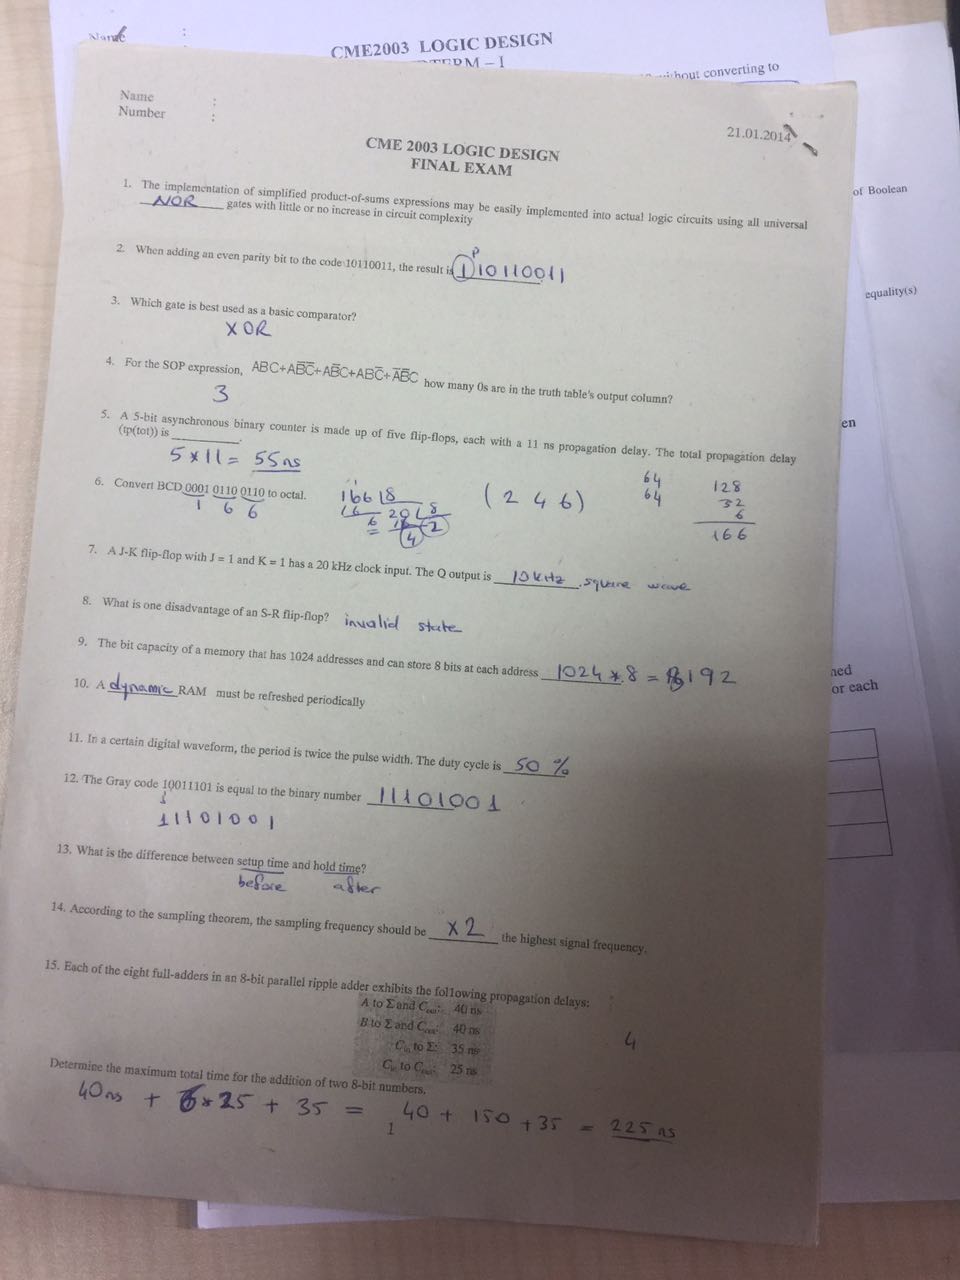 Name :
CME2003 LOGIC DESIGN
hout converting to
of Boolean
equality(s)
en
or each
Name :
Number :
21.01.2014
CME 2003 LOGIC DESIGN
FINAL EXAM
1. The implementation of simplified product-of-sums expressions may be easily implemented into actual logic circuits using all universal
NOR gates with little or no increase in circuit complexity
P
2. When adding an even parity bit to the code 10110011, the result is 1 10110011
3. Which gate is best used as a basic comparator?
XOR
4. For the SOP expression, ABC+AB̅C̅+AB̅C+ABC̅+A̅B̅C how many 0s are in the truth table's output column?
3
5. A 5-bit asynchronous binary counter is made up of five flip-flops, each with a 11 ns propagation delay. The total propagation delay
(tp(tot)) is ________.
5 * 11 = 55ns
6. Convert BCD 0001 0110 0110 to octal.
1 6 6
166 8
16 20 8
6 16 2
4
(2 4 6)
64
64
128
32
6
166
7. A J-K flip-flop with J = 1 and K = 1 has a 20 kHz clock input. The Q output is 10kHz square wave
8. What is one disadvantage of an S-R flip-flop? invalid state
9. The bit capacity of a memory that has 1024 addresses and can store 8 bits at each address 1024 * 8 = 8192
10. A dynamic RAM must be refreshed periodically
11. In a certain digital waveform, the period is twice the pulse width. The duty cycle is 50 %
12. The Gray code 10011101 is equal to the binary number 11101001
11101001
13. What is the difference between setup time and hold time?
before after
14. According to the sampling theorem, the sampling frequency should be x2 the highest signal frequency.
15. Each of the eight full-adders in an 8-bit parallel ripple adder exhibits the following propagation delays:
A to Σ and Cout: 40 ns
B to Σ and Cout: 40 ns
Cin to Σ: 35 ns
Cin to Cout: 25 ns
4
Determine the maximum total time for the addition of two 8-bit numbers.
40ns + 6*25 + 35 = 40 + 150 + 35 = 225 ns
1